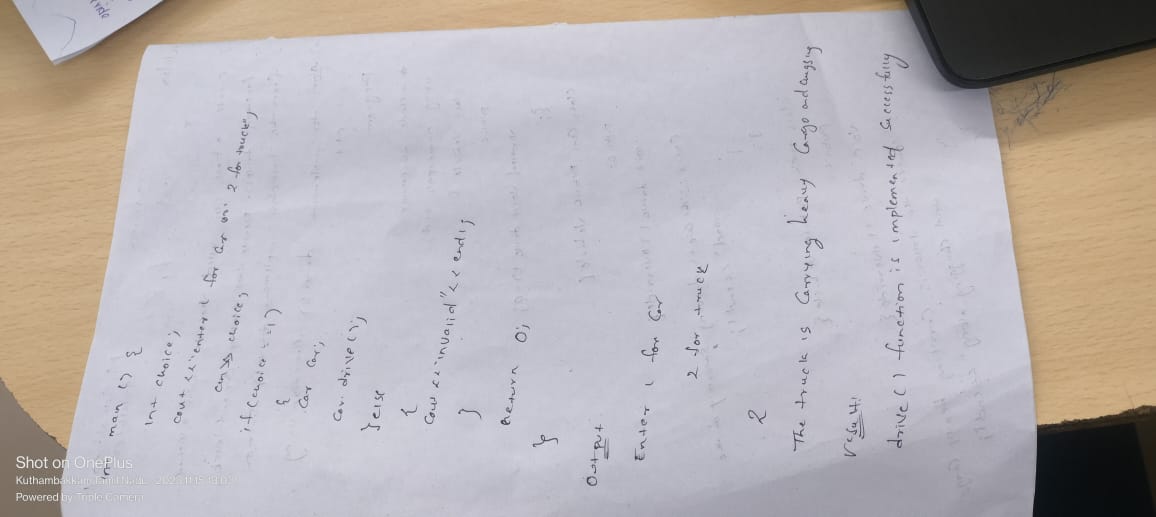 int main () {
int choice;
cout << "enter 1 for Car or: 2 for truck";
cin >> choice;
if (choice ==1)
{
Car Car;
Car. drive ();
} else
{
Cout << "invalid" << endl;
}
Return 0;
}
Output
Enter 1 for Car
2 for truck
2
The truck is Carrying heavy Cargo and
result:
drive ( ) function is implemented successfully
Shot on OnePlus
Kuthambakkam, Tamil Nadu
Powered by Triple Camera